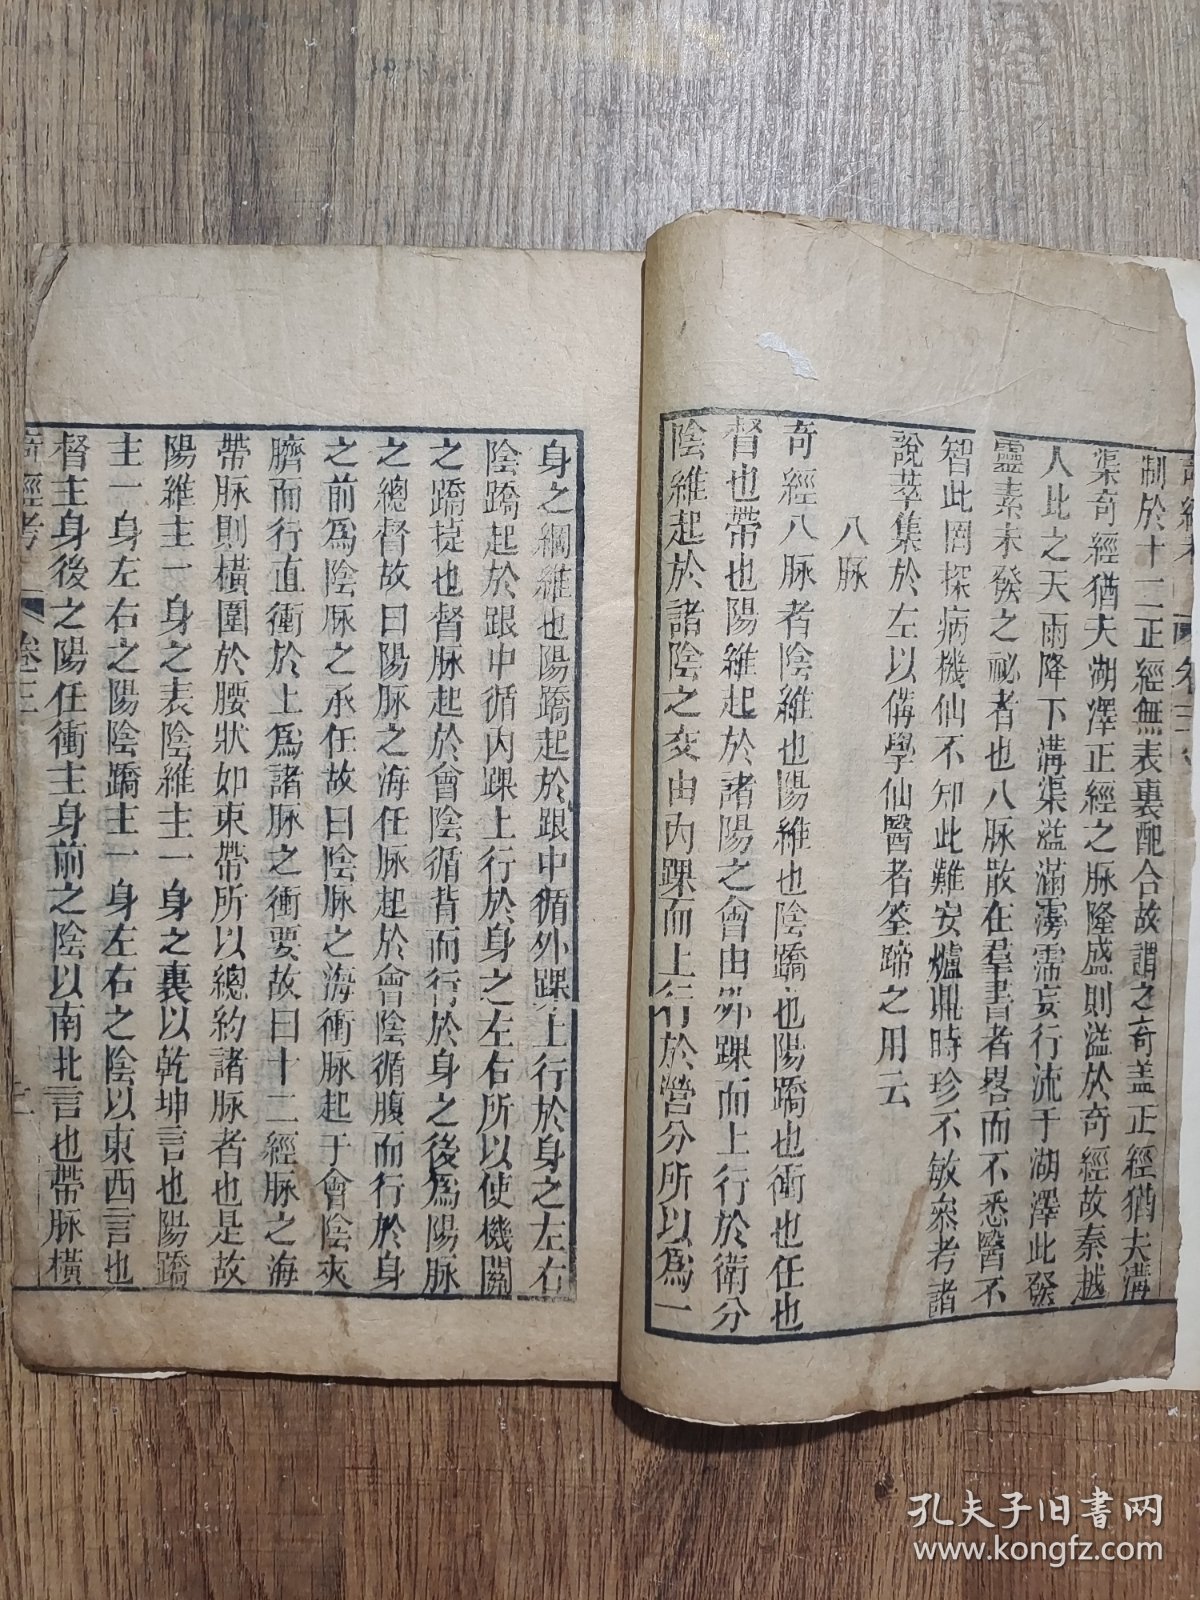 制於十二正經無表裏配合故謂之奇盖正經猶夫溝
渠奇經猶夫湖澤正經之脉隆盛則溢於奇經故秦越
人此之天雨降下溝渠溢滿霶霈妄行流于湖澤此發
靈素未發之祕者也八脉散在羣書者畧而不悉醫不
智此罔探病機仙不知此難安爐鼎時珍不敏叅考諸
說萃集於左以備學仙醫者筌蹄之用云
八脉
奇經八脉者陰維也陽維也陰蹻也陽蹻也衝也任也
督也帶也陽維起於諸陽之會由外踝而上行於衛分
陰維起於諸陰之交由內踝而上行於營分所以爲一
身之綱維也陽蹻起於跟中循外踝上行於身之左右
陰蹻起於跟中循內踝上行於身之左右所以使機關
之蹻㨗也督脉起於會陰循背而行於身之後爲陽脉
之總督故曰陽脉之海任脉起於會陰循腹而行於身
之前爲陰脉之承任故曰陰脉之海衝脉起于會陰夾
臍而行直衝於上爲諸脉之衝要故曰十二經脉之海
帶脉則橫圍於腰狀如束帶所以總約諸脉者也是故
陽維主一身之表陰維主一身之裏以乾坤言也陽蹻
主一身左右之陽陰蹻主一身左右之陰以東西言也
督主身後之陽任衝主身前之陰以南北言也帶脉橫
奇經考 卷三
孔夫子旧书网
www.kongfz.com